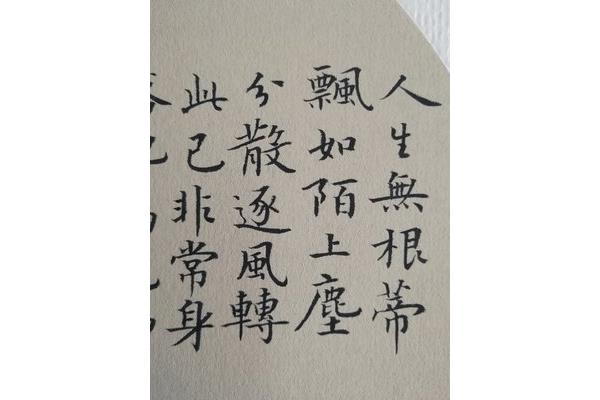 人生無根蒂
飄如陌上塵
分散逐風轉
此已非常身